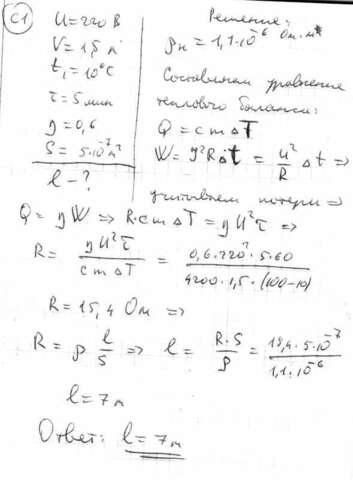 C1
U = 220 В
V = 1,5 л
t₁ = 10°C
τ = 5 мин
η = 0,6
S = 5·10⁻⁷ м²
l – ?
Решение:
ρн = 1,1·10⁻⁶ Ом·м
Составим уравнение
теплового баланса:
Q = cm ΔT
W = I²RΔt = U²/R Δt ⇒
учитываем потери ⇒
Q = ηW ⇒ R·cmΔT = ηU²τ ⇒
R = ηU²τ / cmΔT = 0,6·220²·5·60 / 4200·1,5·(100-10)
R = 15,4 Ом ⇒
R = ρ l/S ⇒ l = R·S/ρ = 15,4·5·10⁻⁷ / 1,1·10⁻⁶
l = 7 м
Ответ: l = 7 м